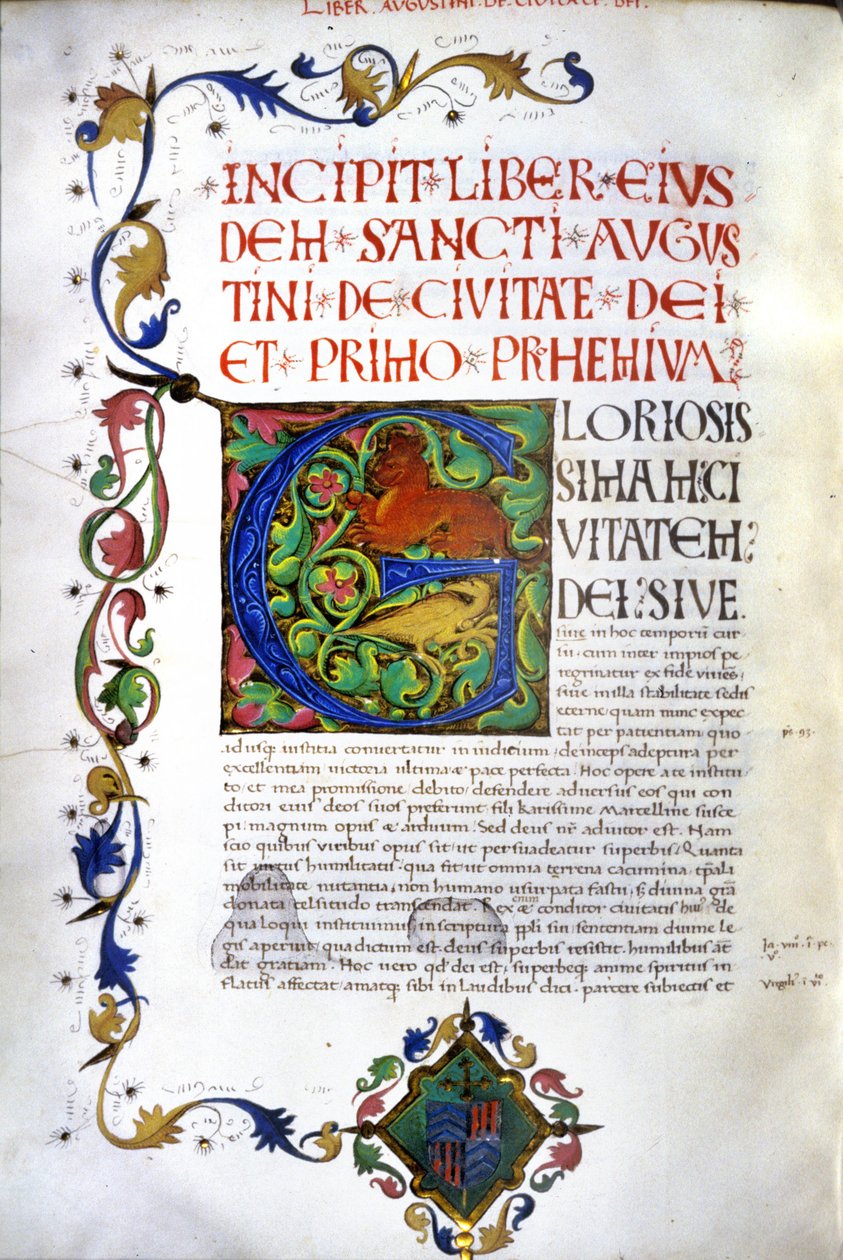 LIBER . AVGVSTINI . DE . CIVITATE . DEI .
INCIPIT LIBER EIVS
DEM SANCTI AVGVS
TINI DE CIVITAE DEI
ET PRIMO PROHEMIVM
GLORIOSIS
SIMAM CI
VITATEM
DEI SIVE.
siue in hoc temporũ cur
su. cum inter impios pe
regrinatur ex fide viuẽs/
siue in illa stabilitate sedis
eterne/ quam nunc expec
tat per patientiam quo
adusq; iustitia conuertatur in iudicium/ deinceps adeptura per
excellentiam/ uictoria ultima & pace perfecta. Hoc opere a te institu
to/ et mea promissione/ debito/ defendere aduersus eos qui con
ditori eius deos suos preferunt/ fili karissime Marcelline susce
pi/ magnum opus & arduum. Sed deus nr̃ adiutor est. Nam
scio quibus viribus opus sit/ ut persuadeatur superbis/ Quanta
sit uirtus humilitatis/ qua fit ut omnia terrena cacumina/ tp̃ali
mobilitate nutantia/ non humano usurpata fastu/ s; diuina grã
donata celsitudo transcendat. Rex enim & conditor ciuitatis hui' de
qua loqui instituimus/ in scriptura ppli sui sententiam diuine le
gis aperuit/ qua dictum est. deus superbis resistit. humilibus aũt
dat gratiam. Hoc uero qd' dei est/ superbeq; anime spiritus in
flatus affectat/ amatq; sibi in laudibus dici. parcere subiectis et
ps. 93.
Ja. iiii. i. pe.
v°.
Virgili'. i. vi°.